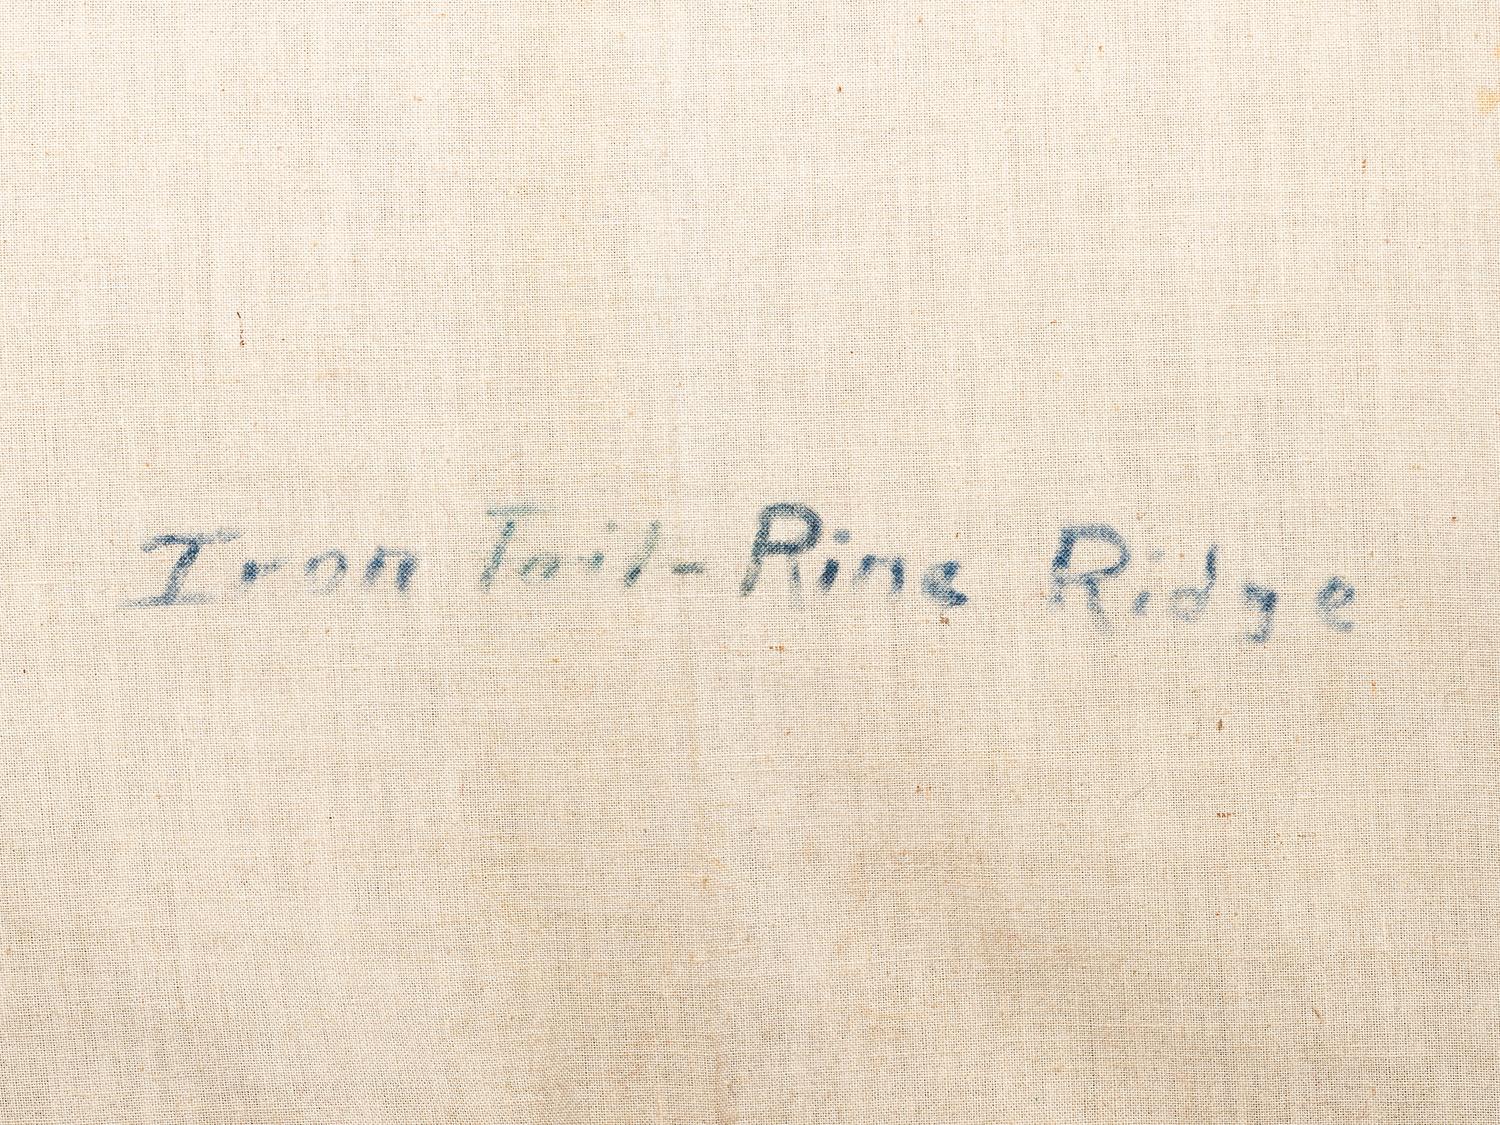 Iron Tail - Rine Ridge